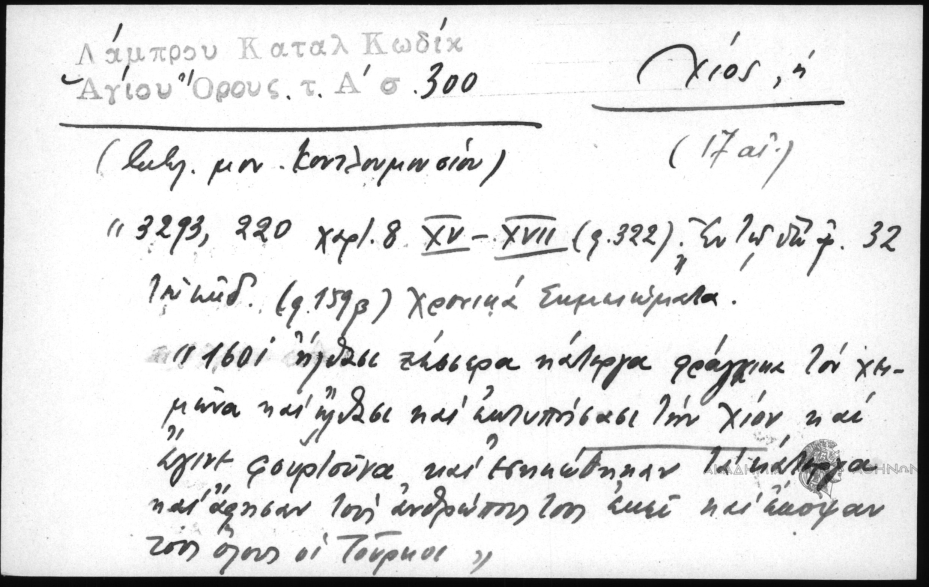 Λάμπρου Καταλ Κωδίκ
Ἁγίου Ὄρους. τ. Α' σ. 300
Χίος, ἡ
(Βιβλ. μον. Κουτλουμουσίου)
(17 αἰ.)
"3293, 220 χαρτ. 8 XV–XVII (φ. 322). Ἐν τῷ φ. 32
(φ. 159β) Χρονικά Σημειώματα.
"1601 ἤλθασι τέσσερα κάτεργα φράγγικα τόν χει-
μῶνα καί ἤλθασι καί ἐκτυπήσασι τήν Χίον καί
ἔγινε φουρτοῦνα καί ἐσηκώθηκαν τά κάτεργα
καί ἄφησαν τούς ἀνθρώπους τους ἐκεῖ καί ἔκοψαν
τους ὅλους οἱ Τοῦρκοι"